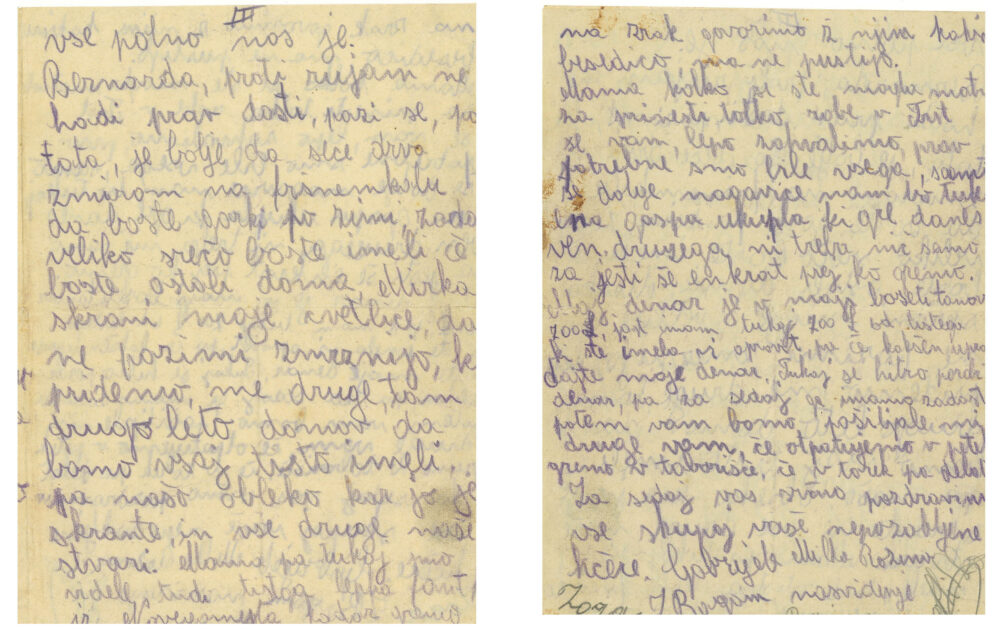 III
vse polno nas je.
Bernarda, proti rujam ne
hodi prav dosti, pazi se, pa
tata, je bolje da seče drva
zmirom na
da boste gorki po zimi, zado
veliko srečo boste imeli, če
boste ostali doma, Mirka
skrani moje cvetlice, da
ne pozimi zmrznijo, k
pridemo, me druge, tam
drugo leto domov da
bomo vsaj tisto imeli,
pa našo obleko kar jo je
skranta, in vse druge naše
stvari. Mama pa tukaj smo
videle, tudi tistega lepga fant
iz kadar gremo
na zrak govorimo ž njim kako
besedico, pa ne pustijo.
Mama kolko si ste mogla
za prinesti, tolko robe v Trst
se vam, lepo zahvalimo, prav
potrebne smo bile vsega, samo
še dolge nagavice nam bo
ena gaspa ukupla ki gre danes
ven, druzega, ni treba nič samo
za jesti še enkrat prej ko gremo.
denar je v moji
700 £ jast imam tukaj 200 £ od tistega
k ste imela vi oprovit, pa če kakšen upra
dajte moje denar. Tukaj se hitro
denar, pa za sedaj ga imamo zadost
potem vam bomo pošiljale mi
druge vam, če otpatujemo v
gremo v taborišče, če v torek pa delat
Za sedaj vas srčno pozdravimo
vse skupaj vaše nepozabljene
hčere. Gabrijela Milka Rozina
Z Bogam nasvidenje